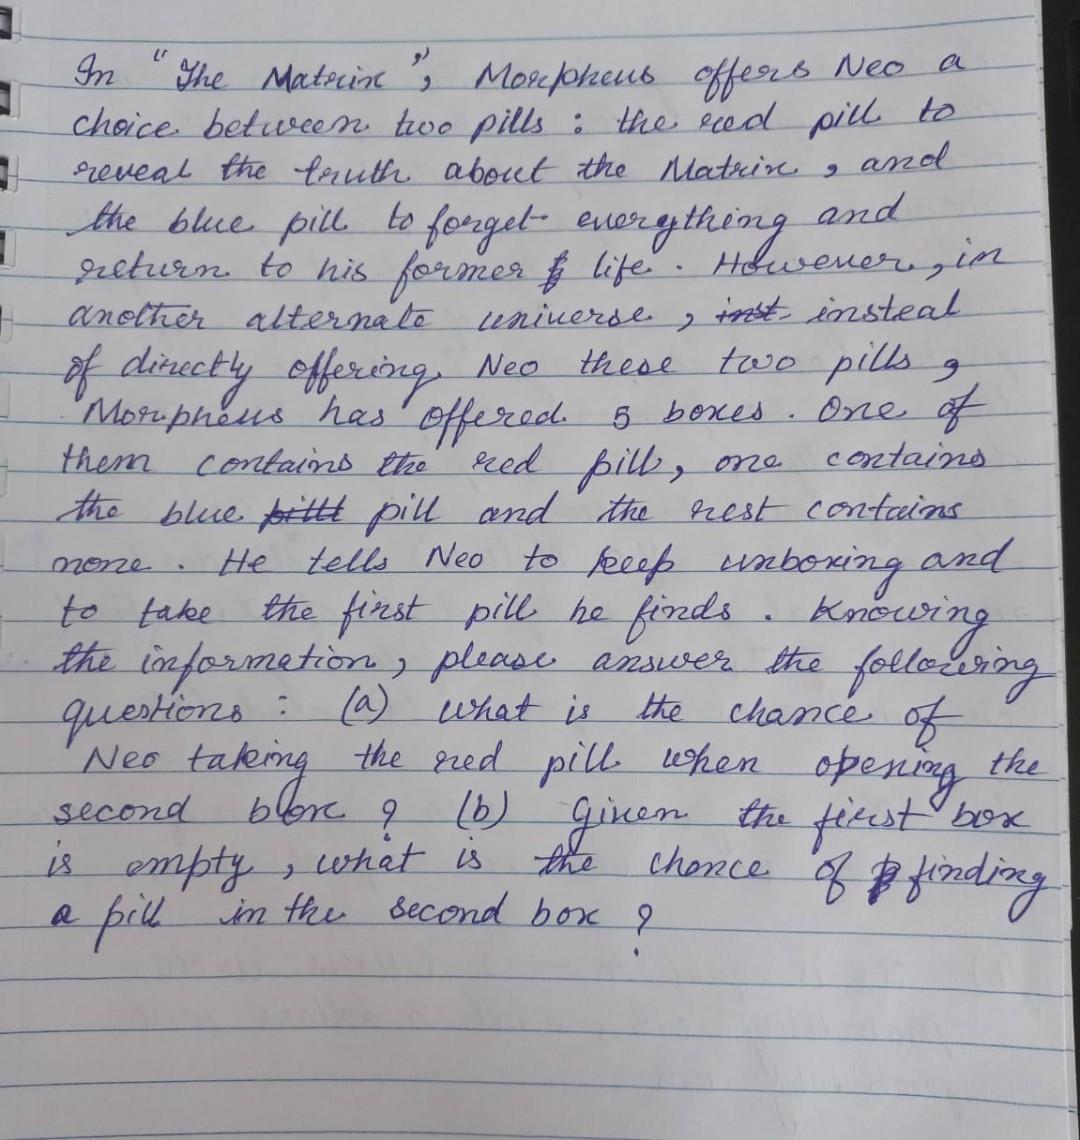 In "The Matrix", Morpheus offers Neo a
choice between two pills : the red pill to
reveal the truth about the Matrix , and
the blue pill to forget everything and
return to his former life . However, in
another alternate universe , inst- insteal
of directly offering Neo these two pills ,
Morpheus has offered 5 boxes . One of
them contains the red pill, one contains
the blue pill and the rest contains
none . He tells Neo to keep unboxing and
to take the first pill he finds . Knowing
the information , please answer the following
questions : (a) what is the chance of
Neo taking the red pill when opening the
second box ? (b) Given the first box
is empty , what is the chance of finding
a pill in the second box ?